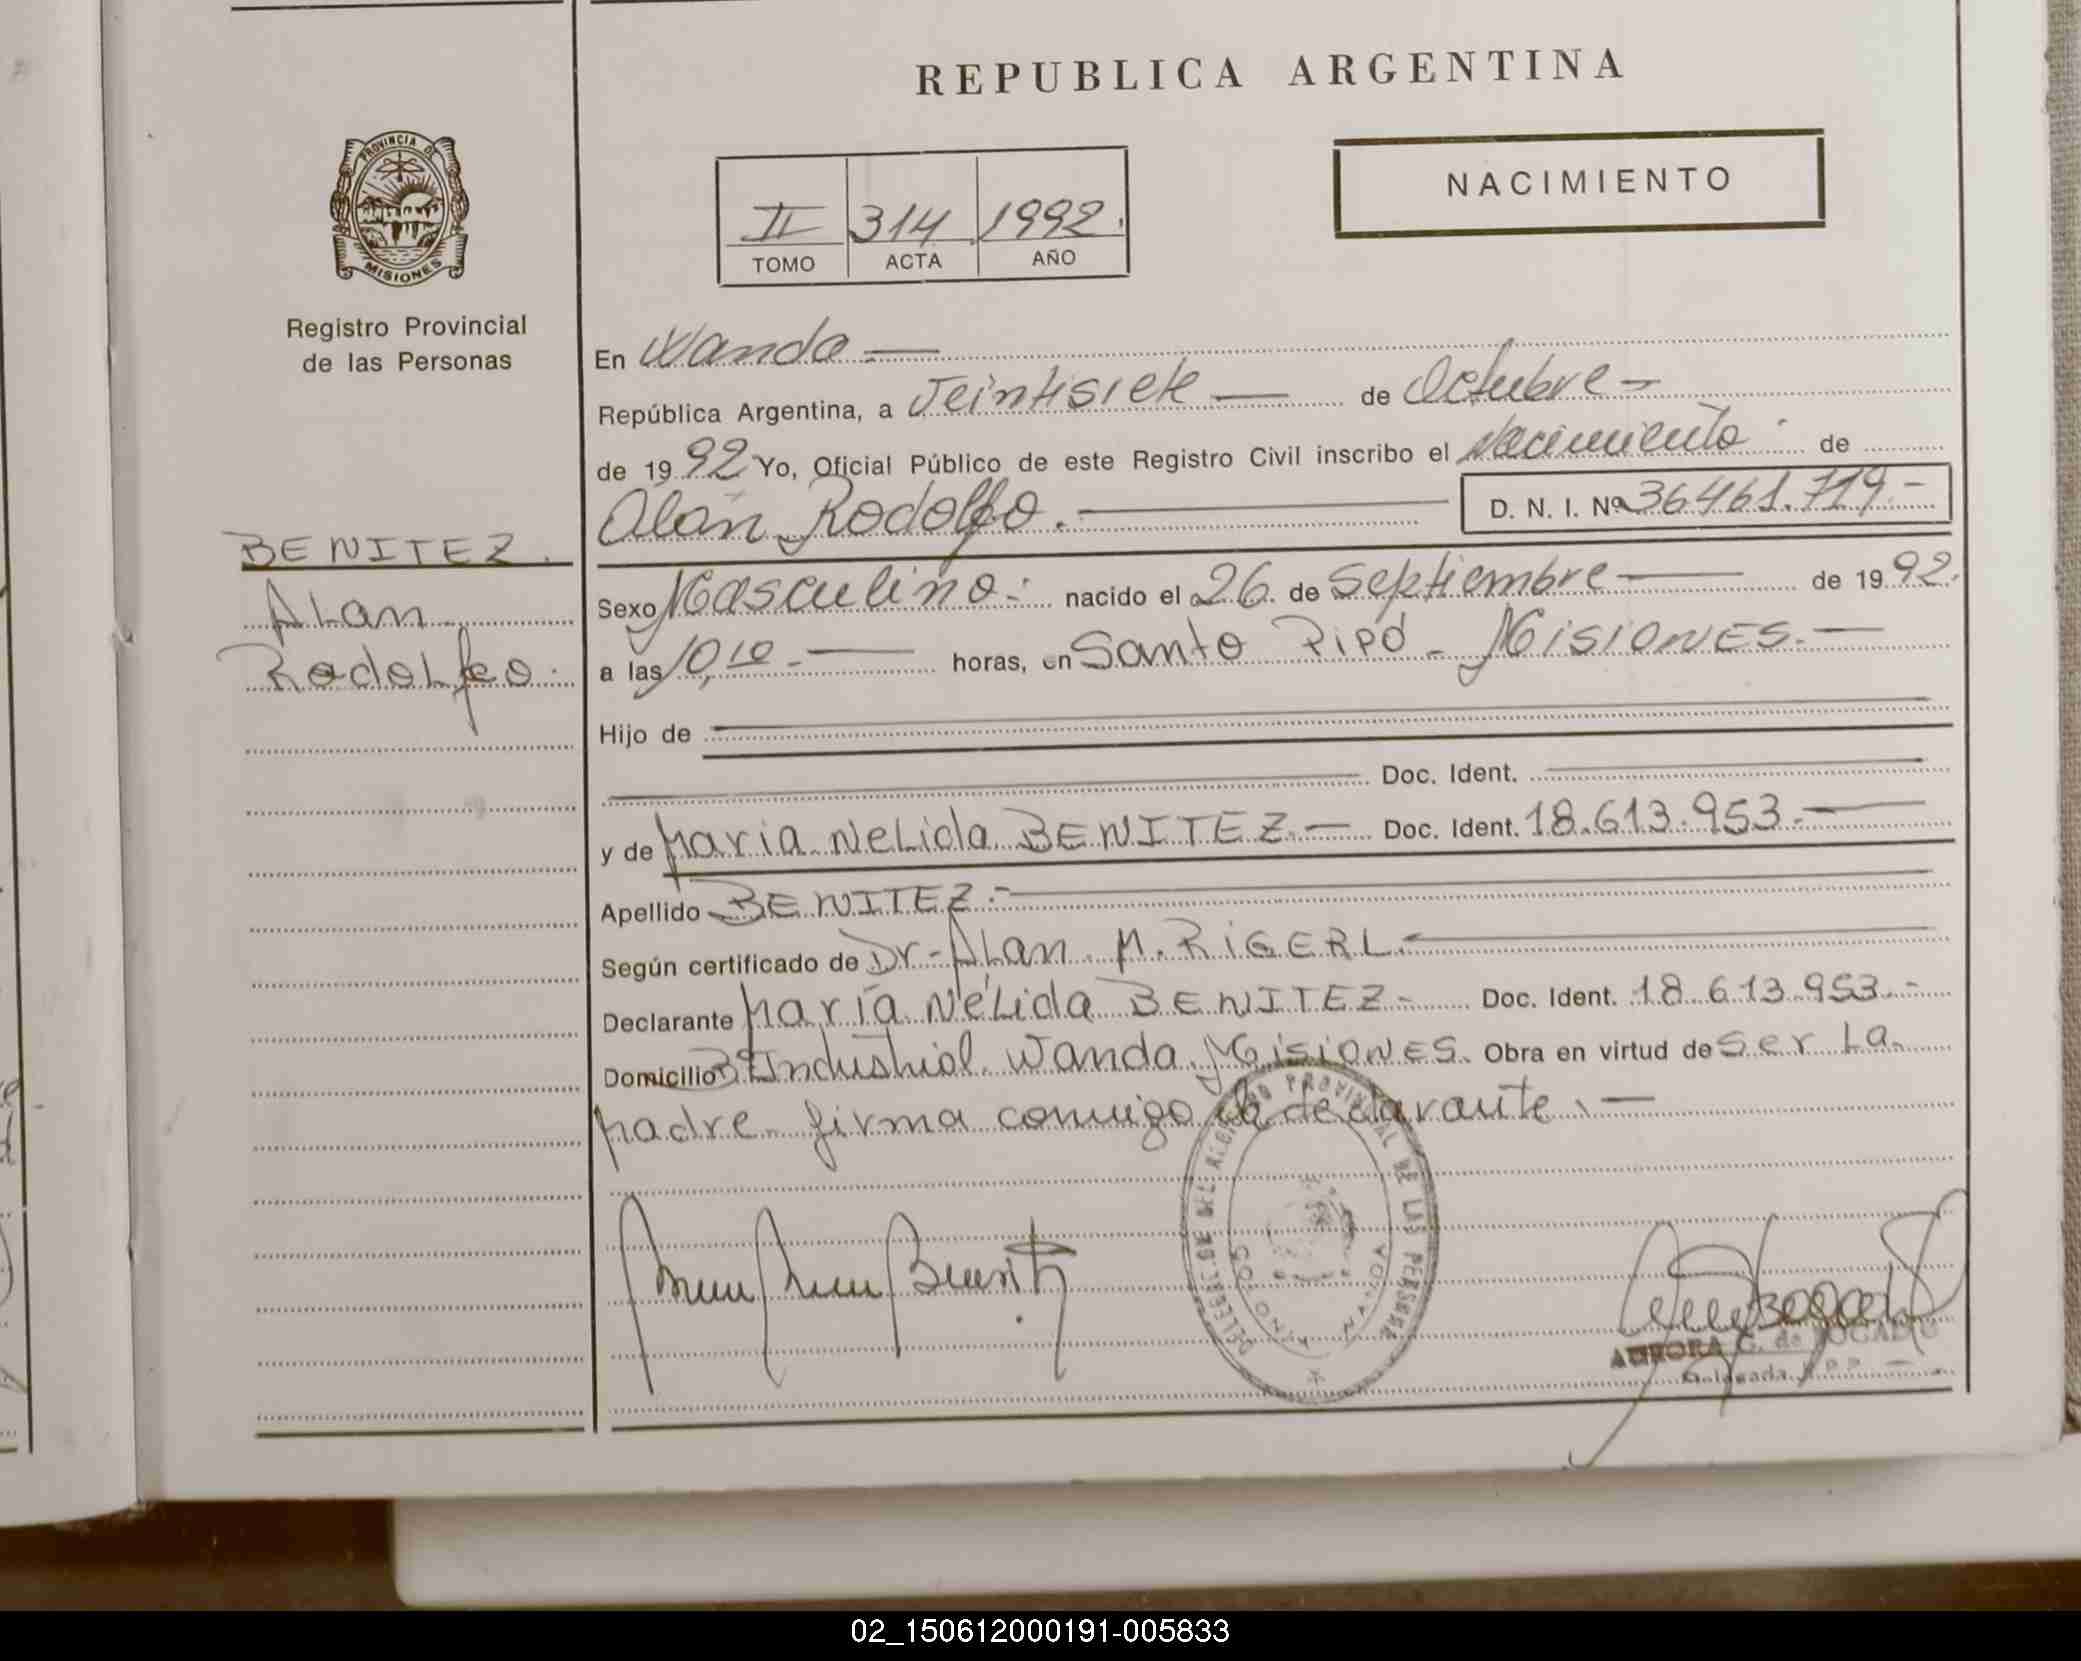 REPUBLICA ARGENTINA
PROVINCIA DE
MISIONES
Registro Provincial
de las Personas
II 314 1992.
TOMO ACTA AÑO
NACIMIENTO
En Wanda.—
República Argentina, a Veintisiete — de Octubre —
de 1992 Yo, Oficial Público de este Registro Civil inscribo el Nacimiento. de
Alan Rodolfo. — D. N. I. Nº 36461.719.-
BENITEZ.
Alan
Rodolfo.
Sexo Masculino.- nacido el 26 de Septiembre — de 1992.
a las 10,10.— horas, en Santo Pipó - Misiones.—
Hijo de
Doc. Ident.
y de Maria Nelida BENITEZ.— Doc. Ident. 18.613.953.—
Apellido BENITEZ.-
Según certificado de Dr-Alan M. RIGERL.
Declarante María Nélida BENITEZ- Doc. Ident. 18.613.953.-
Domicilio Bº Industrial Wanda Misiones. Obra en virtud de ser la
madre. firma conmigo la declarante.—
DELEGACION PROVINCIAL DE LAS PERSONAS
WANDA
AURORA G. de BOGADO
Delegada R.P.P.
02_150612000191-005833